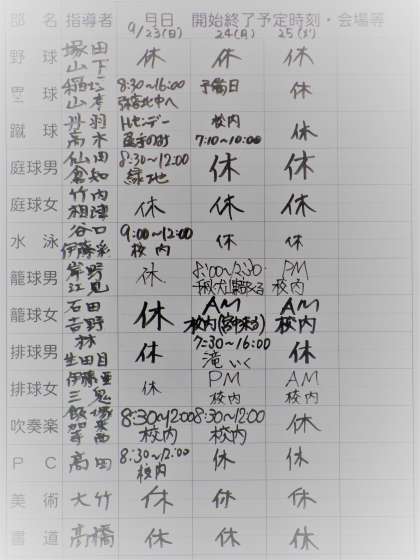 部 名 指導者 月日 開始終了予定時刻・会場等
9/23(日) 24(月) 25(火)
野 球 塚田 山下 休 休 休
塁 球 山本 8:30~16:00 予備日 休
蹴 球 丹羽 高木 Hセンデー 校内 7:10~10:00 休
庭球男 仙田 倉知 8:30~12:00 緑地 休 休
庭球女 竹内 相津 休 休 休
水 泳 谷口 伊藤彩 9:00~12:00 校内 休 休
籠球男 岸野 江見 休 8:00~12:30 PM 校内
籠球女 石田 吉野 休 AM 校内 AM 校内
排球男 林 生田目 休 7:30~16:00 滝いく 休
排球女 伊藤亜 三鬼 休 PM 校内 AM 校内
吹奏楽 飯場 8:30~12:00 校内 8:30~12:00 校内 休
PC 高田 8:30~12:00 校内 休 休
美 術 大竹 休 休 休
書 道 高橋 休 休 休